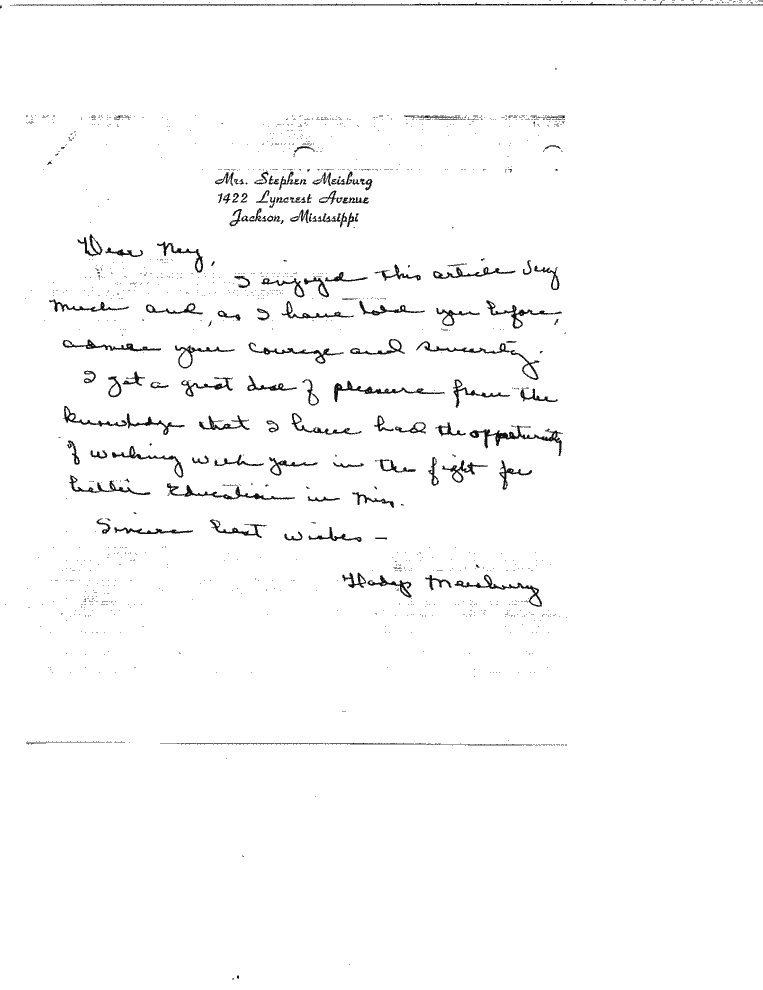 Mrs. Stephen Meisburg
1422 Lyncrest Avenue
Jackson, Mississippi
Dear
I enjoyed this article very
much and, as I have told you before,
admire your courage and sincerity.
I get a great deal of pleasure from the
knowledge that I have had the opportunity
of working with you in the fight for
better Education in Miss.
Sincere best wishes —
Gladys Meisburg